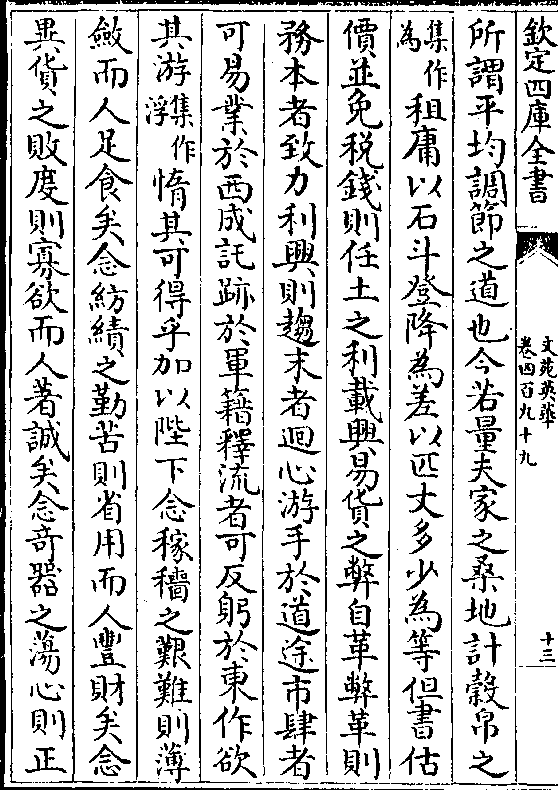 欽定四庫全書
文苑英華
卷四百九十九
十三
所謂平均調節之道也今若量夫家之桑地計穀帛之
集作為租庸以石斗登降為差以匹丈多少為等但書估
價並免税錢則任土之利載興易貨之弊自革弊革則
務本者致力利興則趨末者迴心游手於道途市肆者
可易業於西成託跡於軍籍釋流者可反躬於東作欲
其游集作浮惰其可得乎加以陛下念稼穡之艱難則薄
斂而人足食矣念紡績之勤苦則省用而人豐財矣念
異貨之敗度則寡欲而人著誠矣念奇器之蕩心則正